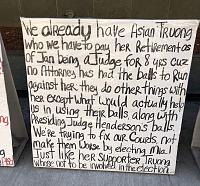 We already have Asian Truong
who we have to pay her Retirement as
of Jan being a Judge for 8 yrs cuz
no Attorney has had the balls to Run
against her they do other things with
her except what would actually help
us in using their balls, along with
Presiding Judge Henderson's balls.
We're trying to fix our Courts not
make them worse by electing Mia!
Just like her supporter Truong
whose not to be involved in the election.